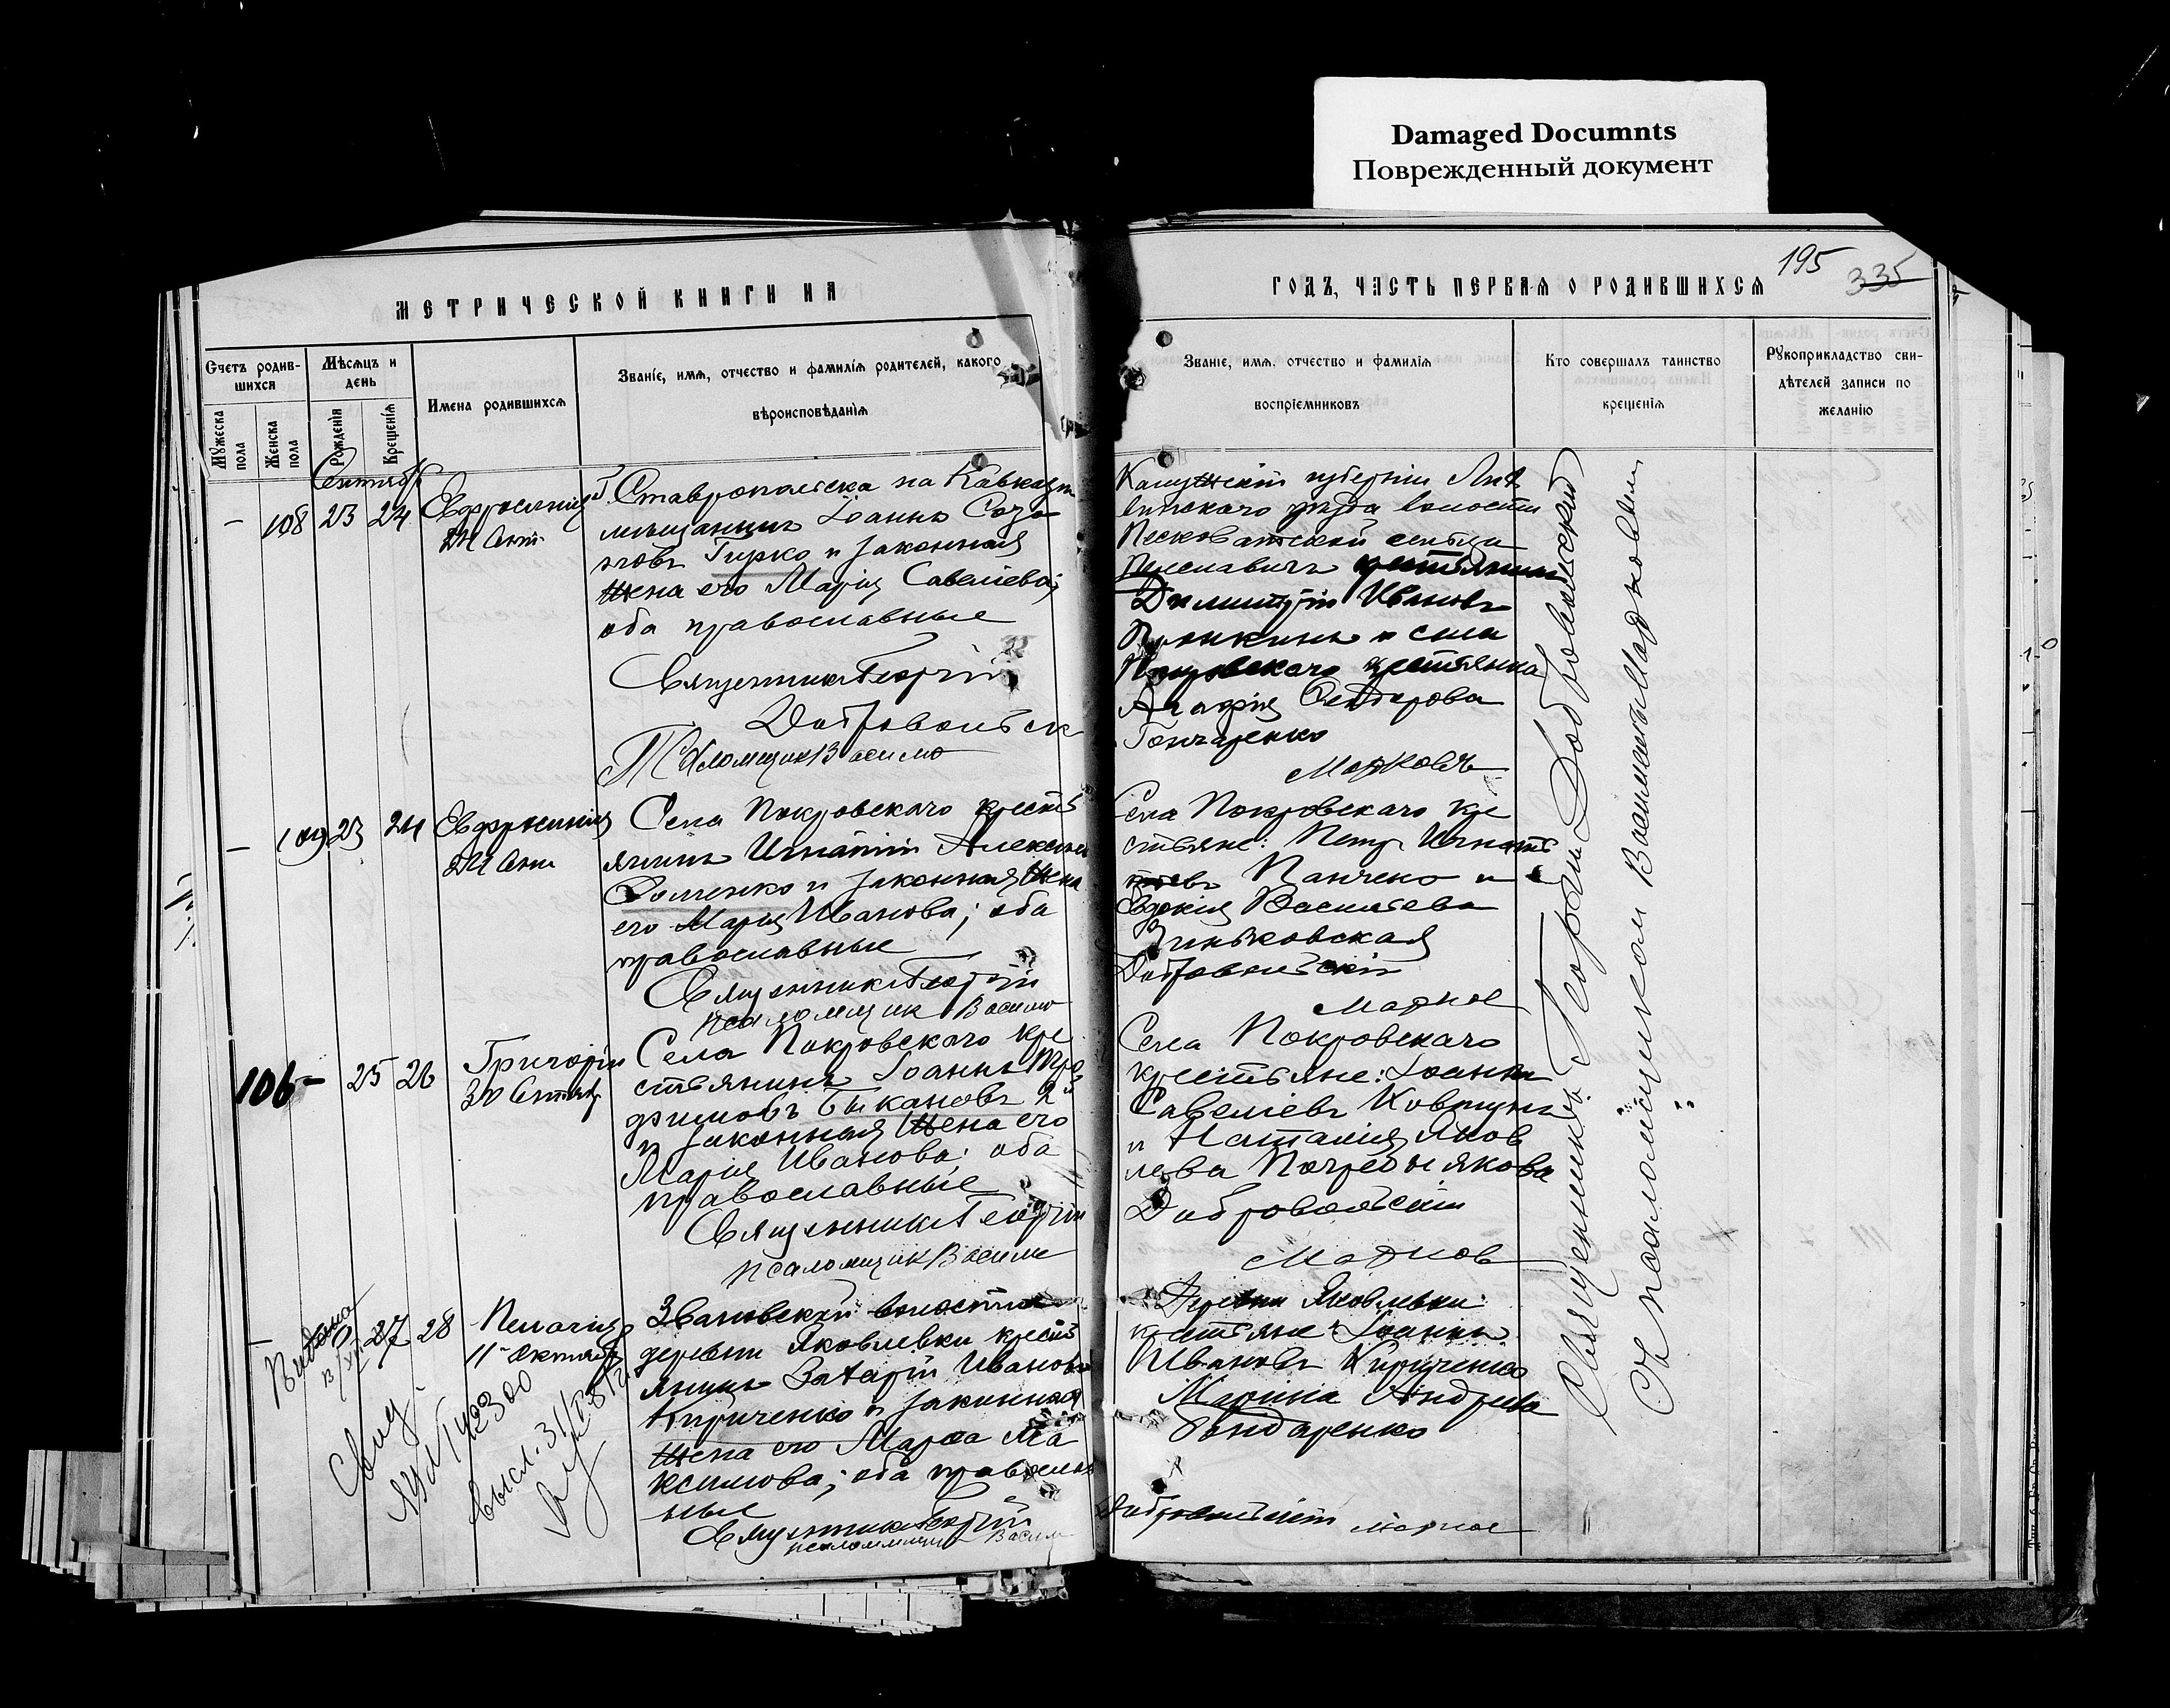 Damaged Documnts
Поврежденный документ
195
335
МЕТРИЧЕСКОЙ КНИГИ НА
ГОДЪ, ЧАСТЬ ПЕРВАЯ О РОДИВШИХСЯ
Счетъ родив-
шихся
Мужеска пола
Женска пола
Мѣсяцъ и
день
Рожденія
Крещенія
Имена родившихся
Званіе, имя, отчество и фамилія родителей, какого
вѣроисповѣданія
Званіе, имя, отчество и фамилія
воспріемниковъ
Кто совершалъ таинство
крещенія
Рукоприкладство сви-
дѣтелей записи по
желанію
Сентябрь
– 108 23 24
Евфросинія
г. Ставрополька на Кавказѣ
мѣщанинъ Іоаннъ Созо
новъ Гирко и законная
жена его Марія Савеліева;
оба православные
Священникъ Георгій
Добровольск
Псаломщикъ Василій
губерніи
уѣзда волости
Песковатской
крестьянинъ
Димитрій Ивановъ
и села
Покровскаго крестьянка
Агафія
Гончаренко
Марковъ
– 109 23 24
Евфросинія
Села Покровскаго кресть
янинъ Игнатій Алексѣев
и законная жена
его Марія Иванова; оба
православные
Священникъ Георгій
псаломщикъ Василій
Села Покровскаго кре
стьяне: Петр Игнать
евъ Панченко и
Евдокія Васильева
Зиньковская
Добровольскій
Марков
106 – 25 26
Григорій
30 Сентяб
Села Покровскаго кре
стьянинъ Іоаннъ Тро
фимовъ Быкановъ 2й
и законная жена его
Марія Иванова; оба
православные
Священникъ Георгій
псаломщикъ Василій
Села Покровскаго
крестьяне: Іоаннъ
Савеліевъ Ковтунъ
и Наталія Яков
лева Погребнякова
Добровольскій
Марков
– 27 28
Пелагія
11 Октября
Звановской волости
деревни Яковлевки кресть
янинъ Захарій Ивановъ
Кириченко и законная
жена его Марѳа Ма
ксимова; оба православ
ные
Священникъ Георгій
псаломщикъ Васил
Деревни Яковлевки
крестьяне: Іоаннъ
Ивановъ Кириченко
Марина Андреева
Бондаренко
Добровольскій Марков
Выдана
Священникъ Георгій Добровольскій
Съ псаломщикомъ Василіемъ Марковымъ